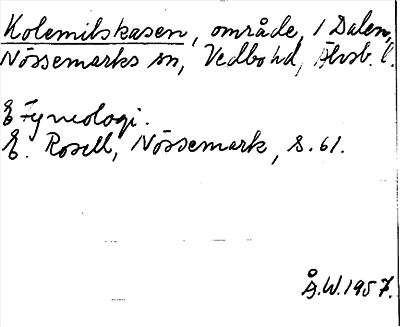 Kolemilskasen, område, i Dalen,
Nössemarks sn, Vedbo hd, Älvsb. l.
E. Rosell, Nössemark, s. 61.
Å.W. 1957.